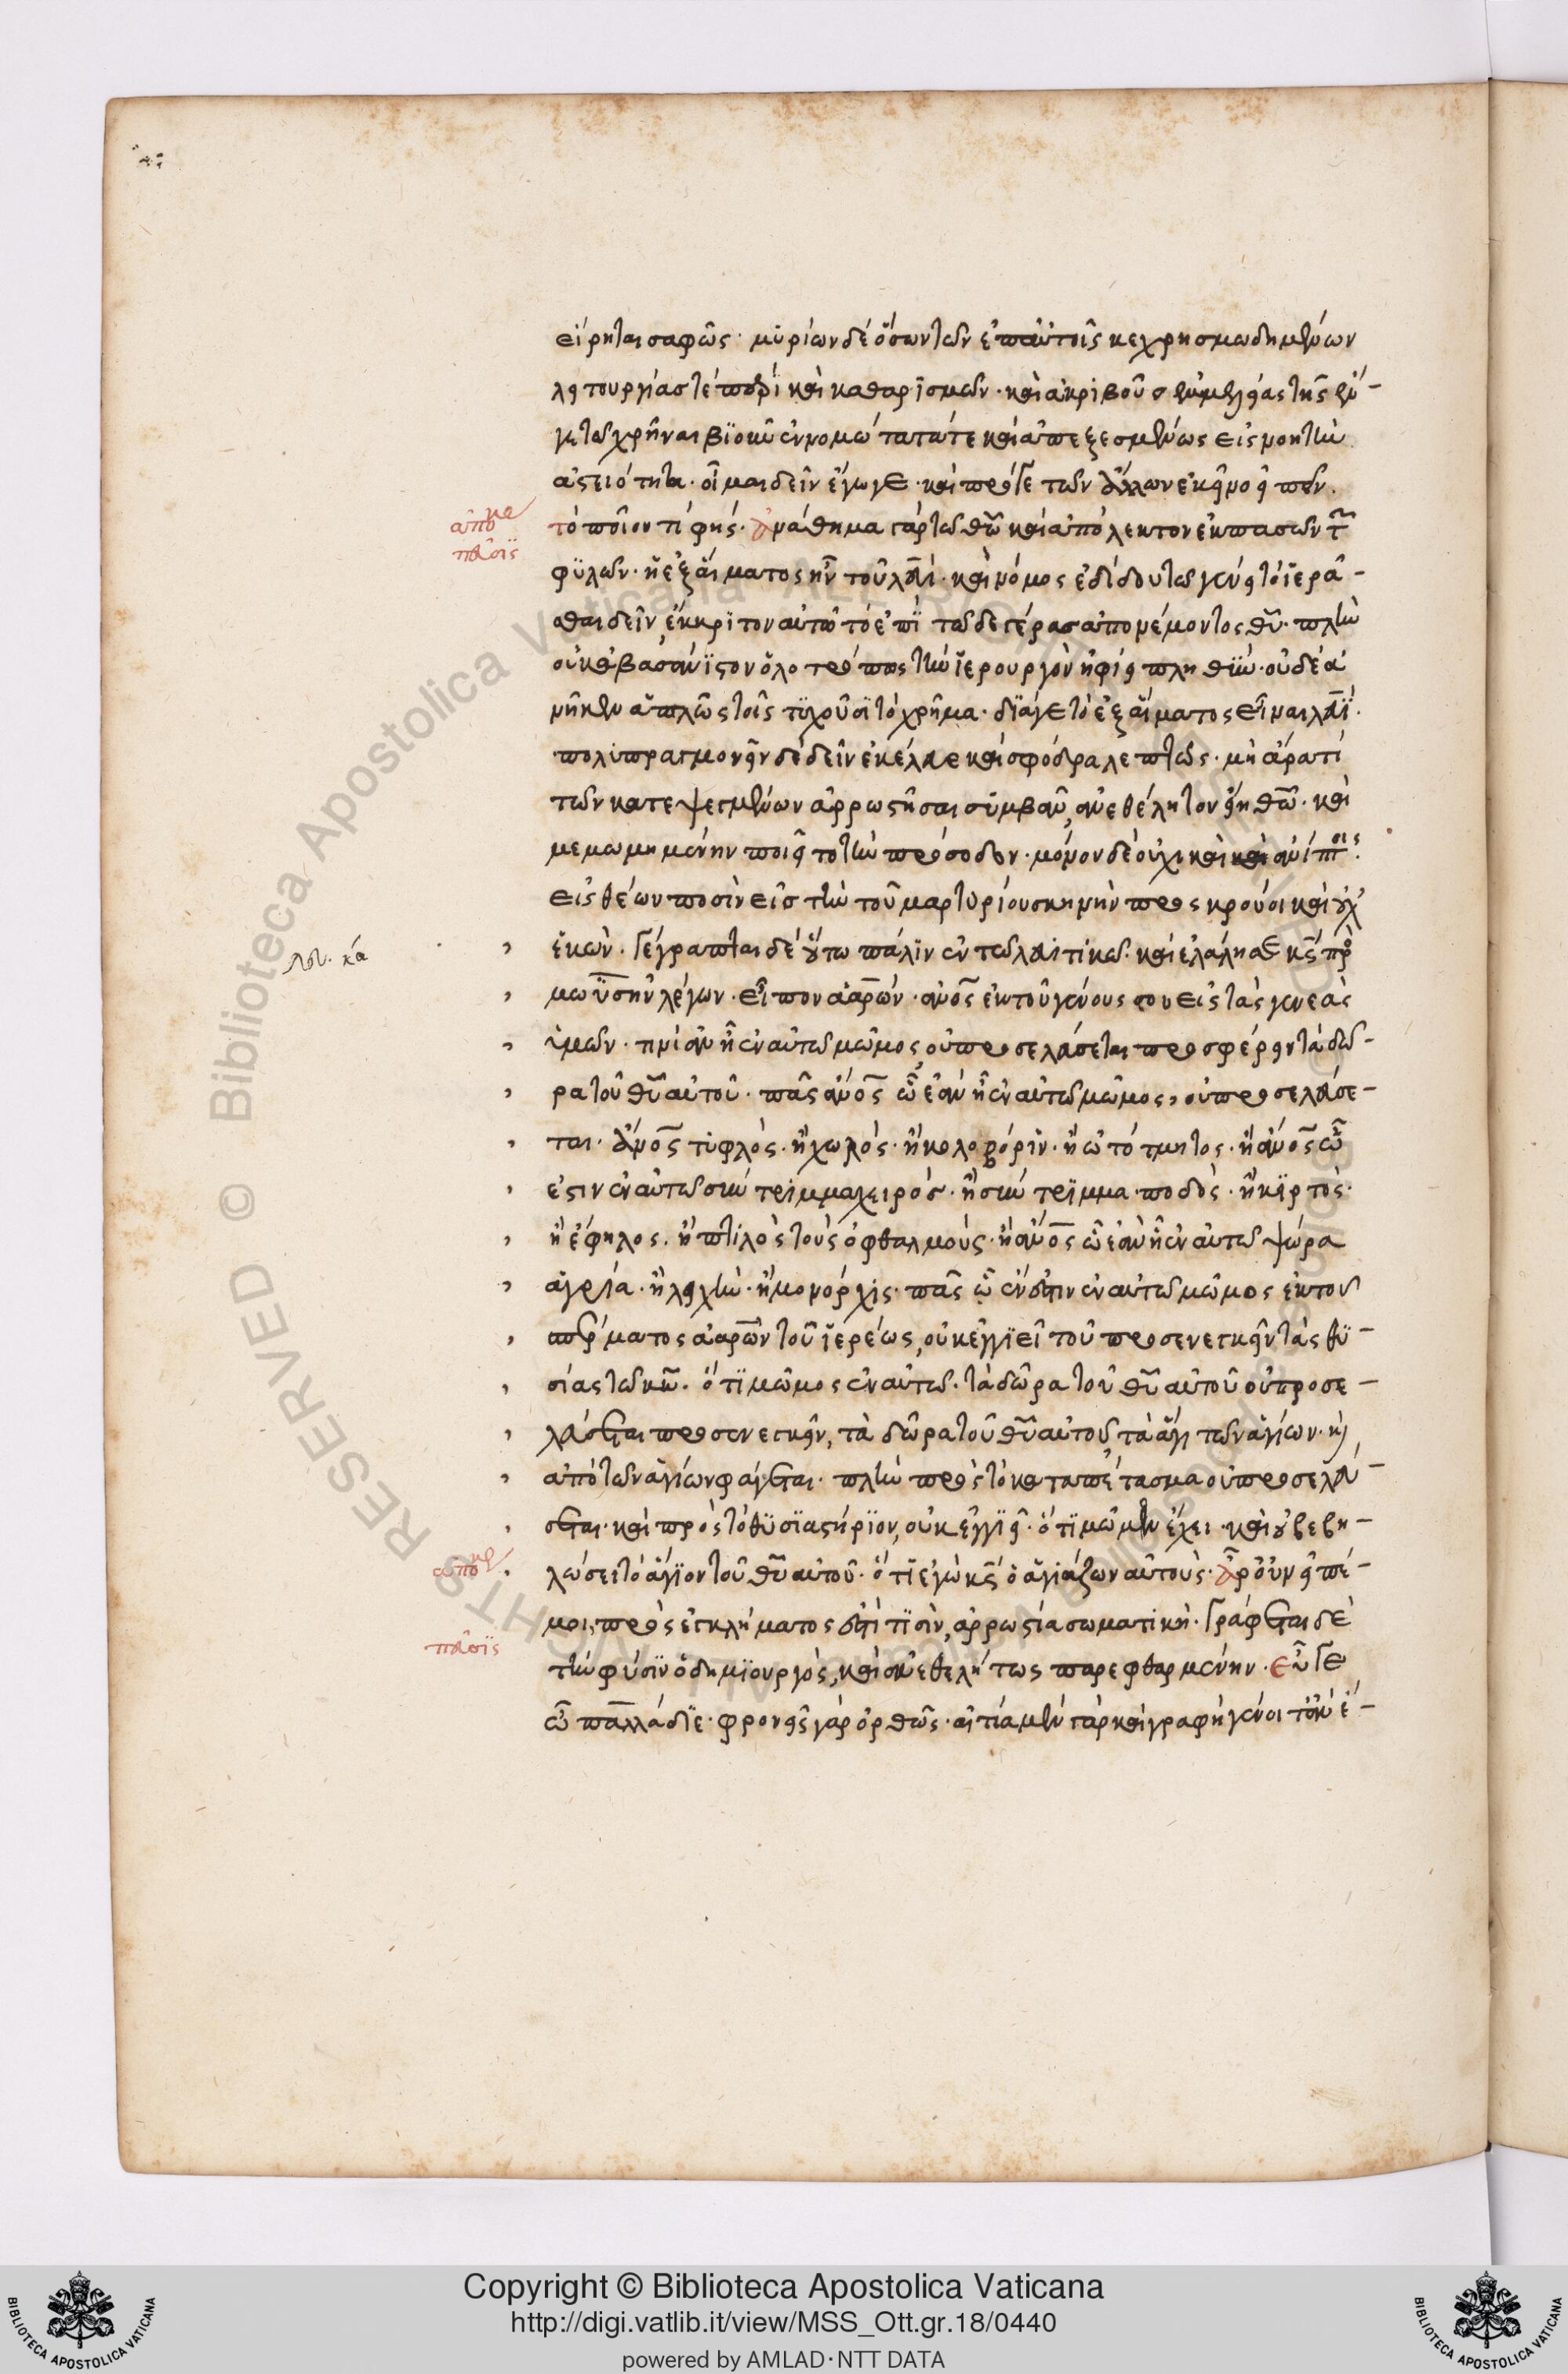 εἴρηται σαφῶς· μυρίων δὲ ὅσων τῶν ἐπ αὐτοῖς κεχρησμωδημένων
λειτουργίας τε πέρι καὶ καθαρισμῶν· καὶ ἀκριβοῦς
χρῆναι βιοῦν ἐννομώτατά τε καὶ ἀπεξεσμένως εἰς
ἀστειότητα· οἶμαι δεῖν ἔγωγε· καὶ πρό γε τῶν ἄλλων ἐκεῖνο εἰπεῖν.
τὸ ποῖον τί φής· ἀνάθημα γὰρ τῷ θῶ καὶ ἀπόλεκτον ἐκ πασῶν τῶν
φυλῶν· ἡ ἐξ αἵματος ἦν τοῦ λευί· καὶ νόμος ἐδίδου τῷ γένει τὸ ἱερᾶ-
σθαι δεῖν, ἔκκριτον αὐτῶ τὸ ἐπὶ τῶδε γέρας ἀπονέμοντος θῦ· πλὴν
οὐκ ἀβασάνιστον ὅλο τρόπως τὴν ἱερουργὸν ἠφίει πληθύν· οὐδὲ ἀ
νῆκεν ἁπλῶς τοῖς τυχοῦσι τὸ χρῆμα· διά γε τὸ ἐξ αἵματος εἶναι λευί·
πολυπραγμονεῖν δὲ δεῖν ἐκέλευε καὶ σφόδρα λεπτῶς· μὴ ἄρα τί
των κατεψεγμένων ἀρρωστῆσαι συμβὰν, ἀνεθέλητον ᾖ θῶ· καὶ
μεμωμημένην ποιεῖτο τὴν πρόσοδον· μόνον δὲ οὐχὶ καὶ καὶ ἀνίπτοις
εἰσθέων ποσὶν εἰς τὴν τοῦ μαρτυρίου σκηνὴν προσκρούοι καὶ οὐχ
Λευ. κα
ἑκών. γέγραπται δὲ οὕτω πάλιν ἐν τῶ λευιτικῶ. καὶ ἐλάλησε κς πρὸς
μωϋσῆν λέγων· εἶπον ἀαρών· ἀνος ἐκ τοῦ γένους σου εἰς τὰς γενεὰς
ὑμῶν· τινὶ ἂν ἦ ἐν αὐτῶ μῶμος, οὐ προσελεύσεται προσφέρειν τὰ δῶ-
ρα τοῦ θῦ αὐτοῦ· πᾶς ἀνος ὧ ἐὰν ἦ ἐν αὐτῶ μῶμος, οὐ προσελεύσε-
ται· ἀνος τυφλὸς· ἢ χωλὸς· ἢ κολοβόριν· ἢ ὠτότμητος· ἢ ἀνος ὧ
ἐστιν ἐν αὐτῶ σύντριμμα χειρός· ἢ σύντριμμα ποδὸς· ἢ κυρτὸς·
ἢ ἔφηλος. ἢ πτίλος τοὺς ὀφθαλμούς· ἢ ἀνος ὧ ἐὰν ἦ ἐν αὐτῶ ψώρα
ἀγρία· ἢ λειχὴν· ἢ μονόρχις· πᾶς ὧ ἐν ἐστιν ἐν αὐτῶ μῶμος ἐκ τοῦ
σπέρματος ἀαρὼν τοῦ ἱερέως, οὐκ ἐγγιεῖ τοῦ προσενεγκεῖν τὰς θυ-
σίας τῶ κῶ. ὅτι μῶμος ἐν αὐτῶ· τὰ δῶρα τοῦ θῦ αὐτοῦ οὐ προσε-
λεύσεται προσενεγκεῖν, τὰ δῶρα τοῦ θῦ αὐτοῦ, τὰ ἅγια τῶν ἁγίων· καὶ
ἀπὸ τῶν ἁγίων φάγεται· πλὴν πρὸς τὸ καταπέτασμα οὐ προσελεύ-
σεται· καὶ πρὸς τὸ θυσιαστήριον, οὐκ ἐγγιεῖ· ὅτι μῶμον ἔχει· καὶ οὐ βεβη-
λώσει τὸ ἅγιον τοῦ θῦ αὐτοῦ· ὅτι ἐγὼ κς ὁ ἁγιάζων αὐτοὺς· ἆρ οὖν εἰπέ
μοι, πρὸς ἐγκλήματος ἐστί τισὶν, ἀρρωστία σωματική· γράφεται δὲ
τὴν φύσιν ὁ δημιουργὸς, καὶ ἀνεθελήτως παρεφθαρμένην. εὖ γε
ὦ παλλάδιε· φρονεῖς γὰρ ὀρθῶς· αἰτία μὲν γὰρ καὶ γραφὴ γένοιτ ἂν ἐ-
Copyright © Biblioteca Apostolica Vaticana
http://digi.vatlib.it/view/MSS_Ott.gr.18/0440
powered by AMLAD·NTT DATA
BIBLIOTECA APOSTOLICA VATICANA
BIBLIOTECA APOSTOLICA VATICANA